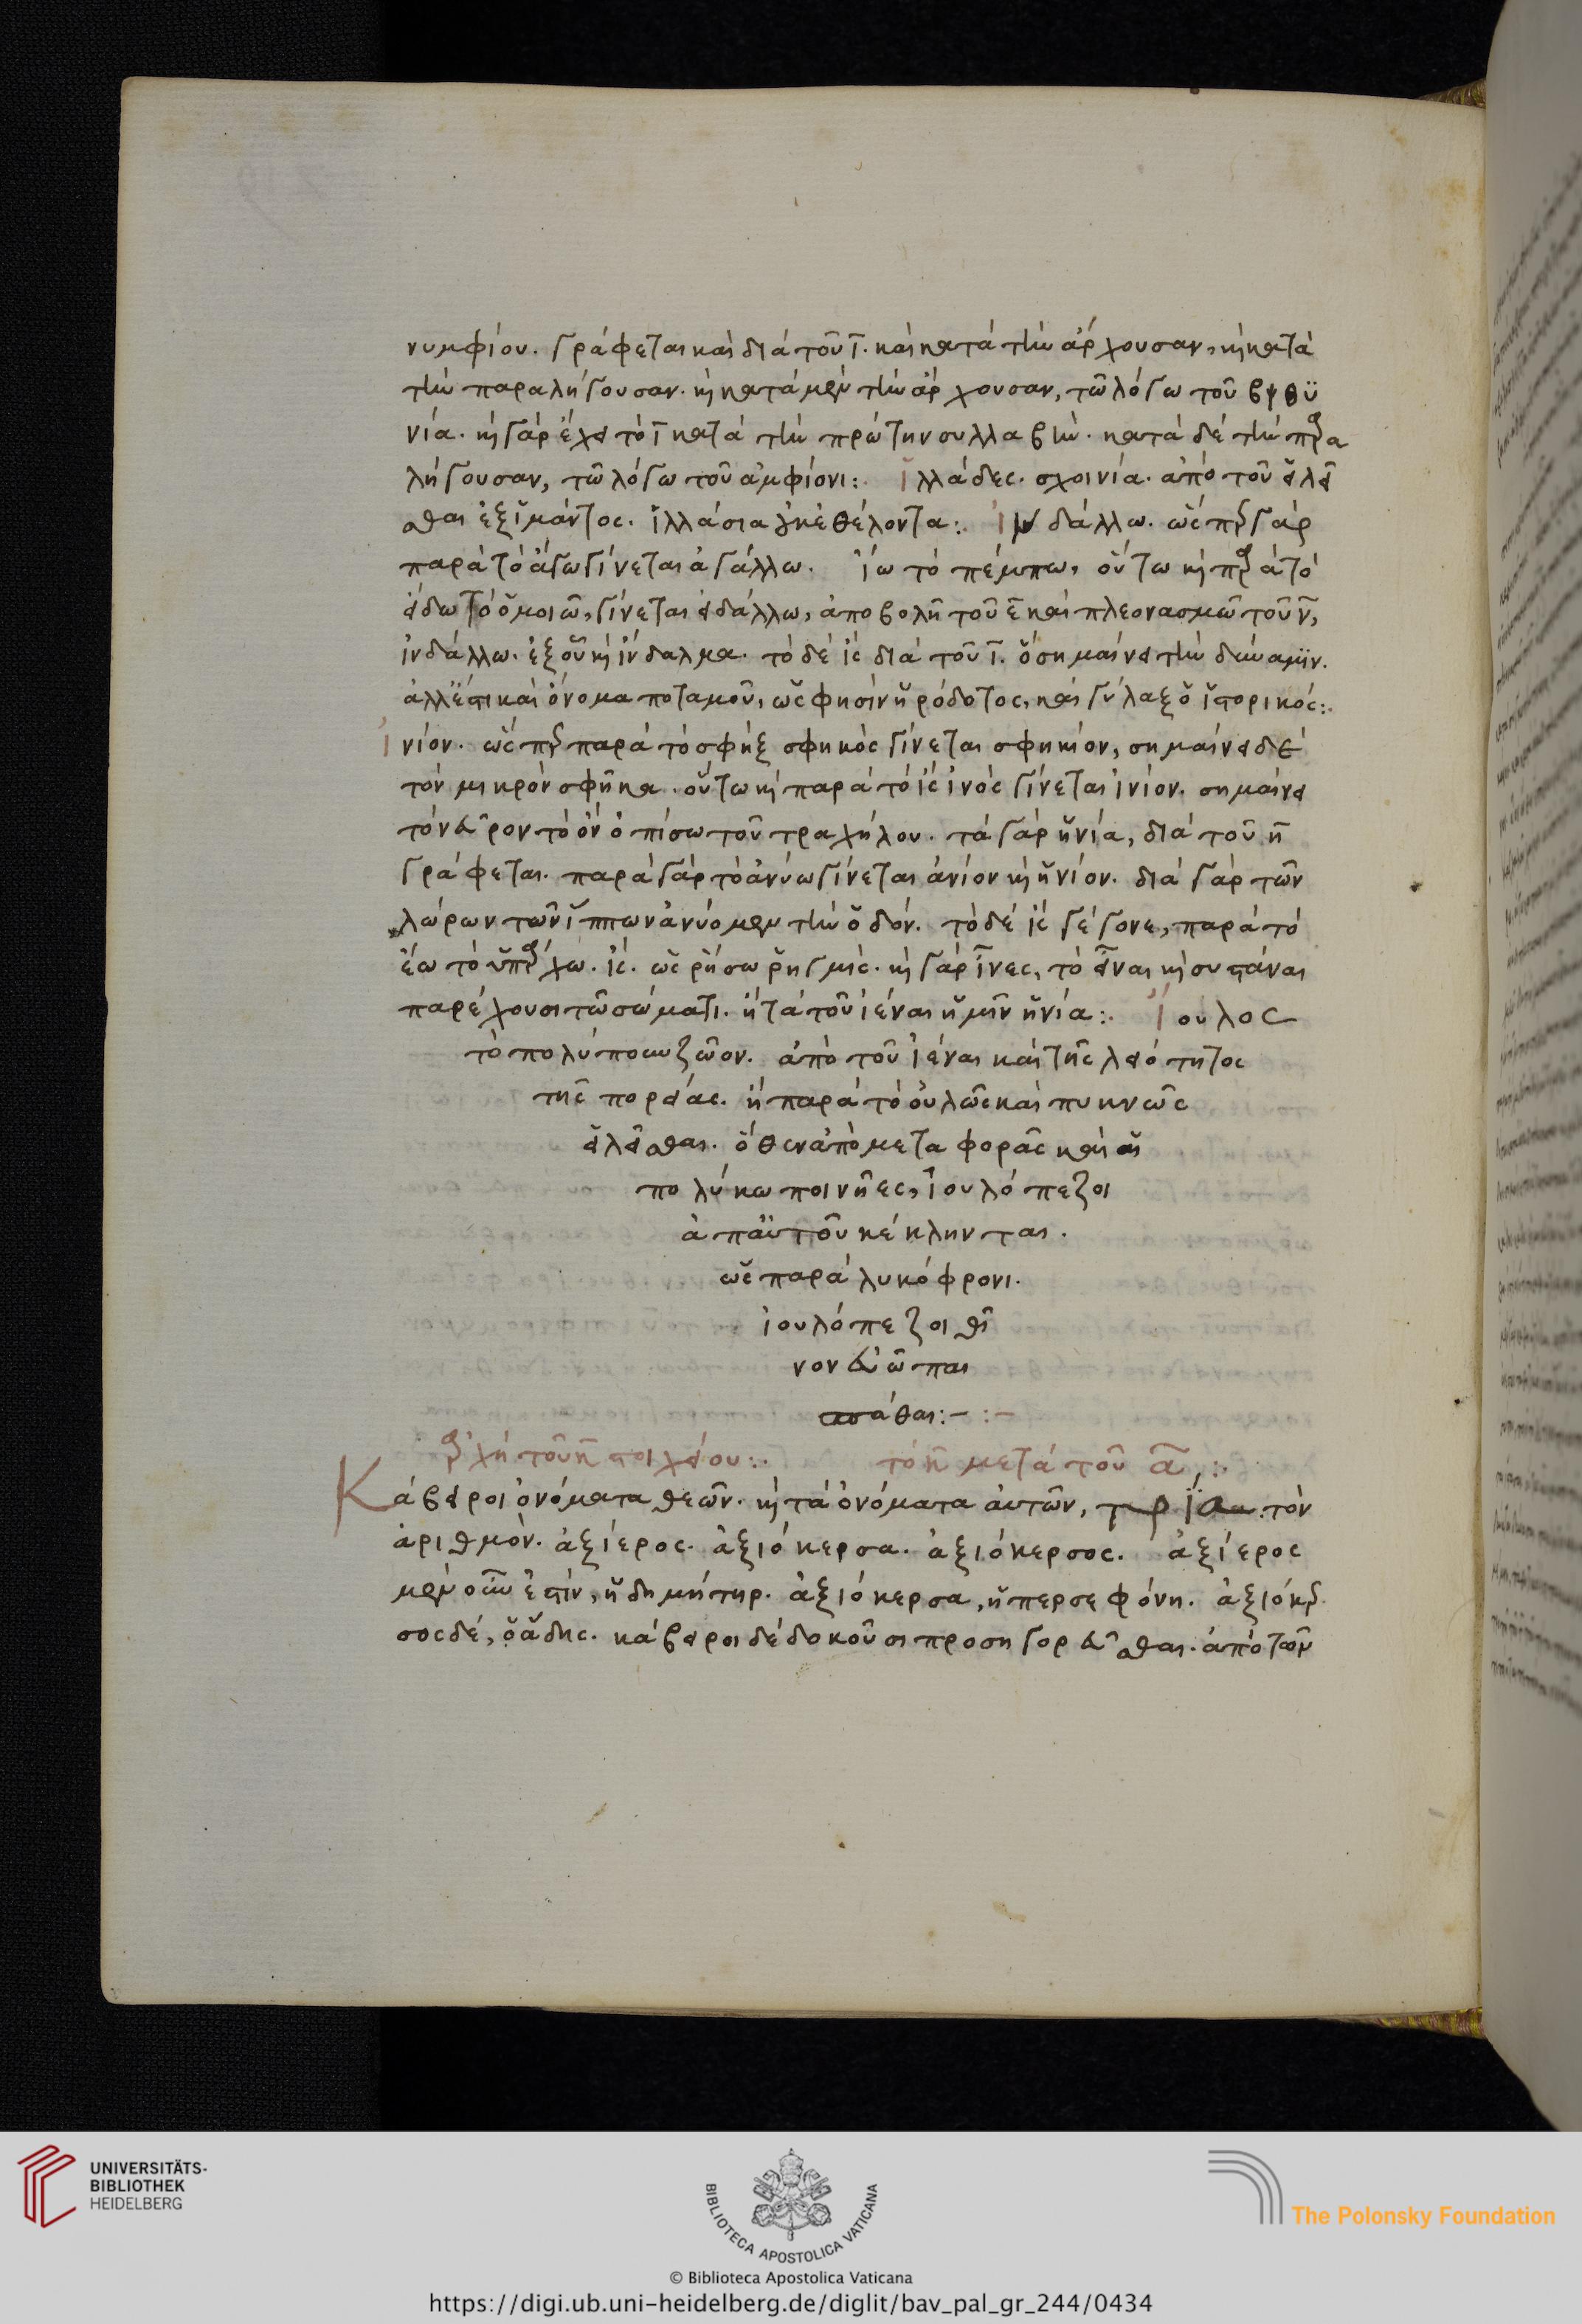 νυμφίου. γράφεται καὶ διὰ τοῦ ϊ. καὶ κατὰ τὴν ἄρχουσαν, κὴ κατὰ
τὴν παραλήγουσαν. κὴ κατὰ μὲν τὴν ἄρχουσαν, τῶ λόγω τοῦ βιθϋ
νία. κὴ γὰρ ἔχει τὸ ϊ κατὰ τὴν πρώτην συλλαβὴν. κατὰ δὲ τὴν παρα
λήγουσαν, τῶ λόγω τοῦ ἀμφίονι: ἰλλάδες. σχοινία. ἀπὸ τοῦ εἰλεῖ
σθαι ἐξ ἱμάντος. ἰλλάσιν οὐκ ἐθέλοντα: ἰνδάλλω. ὥσπερ γὰρ
παρὰ τὸ ἄγω γίνεται ἀγάλλω. ἵω τὸ πέμπω, οὕτω κὴ παρὰ τὸ
εἴδω τὸ ὁμοιῶ, γίνεται εἰδάλλω, ἀποβολῆ τοῦ ε καὶ πλεονασμῶ τοῦ ν,
ἰνδάλλω. ἐξ οὗ κὴ ἴνδαλμα. τὸ δὲ ἲς διὰ τοῦ ϊ. ὃ σημαίνει τὴν δύναμιν.
ἀλλ' ἔστι καὶ ὄνομα ποταμοῦ, ὥς φησὶν ἡρόδοτος, καὶ σύλαξ ὁ ἱστορικός:
ἰνίον. ὥσπερ παρὰ τὸ σφὴξ σφηκὸς γίνεται σφηκίον, σημαίνει δὲ
τὸν μικρὸν σφῆκα. οὕτω κὴ παρὰ τὸ ἲς ἰνὸς γίνεται ἰνίον. σημαίνει
τὸ νεῦρον τὸ ὂν ὀπίσω τοῦ τραχήλου. τὰ γὰρ ἡνία, διὰ τοῦ η
γράφεται. παρὰ γὰρ τὸ ἀνύω γίνεται ἀνίον κὴ ἡνίον. διὰ γὰρ τῶν
λώρων τῶν ἵππων ἀνύομεν τὴν ὁδόν. τὸ δὲ ἲς γέγονε, παρὰ τὸ
ἔω τὸ ὑπάρχω. ἴς. ὡς ῥήσω ῥηγμίς. κὴ γὰρ ἶνες, τὸ εἶναι κὴ συστάναι
παρέχουσι τῶ σώματι. ἢ τὰ τοῦ ἰέναι ἡμῖν ἡνία: ἴουλος
τὸ πολύπουν ζῶον. ἀπὸ τοῦ ἰέναι καὶ τῆς λειότητος
τῆς πορείας. ἢ παρὰ τὸ οὐλῶς καὶ πυκνῶς
εἰλεῖσθαι. ὅθεν ἀπὸ μεταφορᾶς καὶ αἱ
πολύκωποι νῆες, ἰουλόπεζοι
ἀπ' αὐτοῦ κέκληνται.
ὡς παρὰ λυκόφρονι.
ἰουλόπεζοι θεῖ
νον εὐῶπαι
σπάθαι:– :–
ἀρχὴ τοῦ κ στοιχείου: τὸ κ μετὰ τοῦ α:
Κάβειροι ὀνόματα θεῶν. κὴ τὰ ὀνόματα αὐτῶν, τρία τὸν
ἀριθμὸν. ἀξίερος. ἀξιόκερσα. ἀξιόκερσος. ἀξίερος
μὲν οὖν ἐστὶν, ἡ δημήτηρ. ἀξιόκερσα, ἡ περσεφόνη. ἀξιόκερ
σος δὲ, ὁ ἅδης. κάβειροι δὲ δοκοῦσι προσηγορεῦσθαι. ἀπὸ τῶν
UNIVERSITÄTS-
BIBLIOTHEK
HEIDELBERG
BIBLIOTECA APOSTOLICA VATICANA
The Polonsky Foundation
© Biblioteca Apostolica Vaticana
https://digi.ub.uni-heidelberg.de/diglit/bav_pal_gr_244/0434